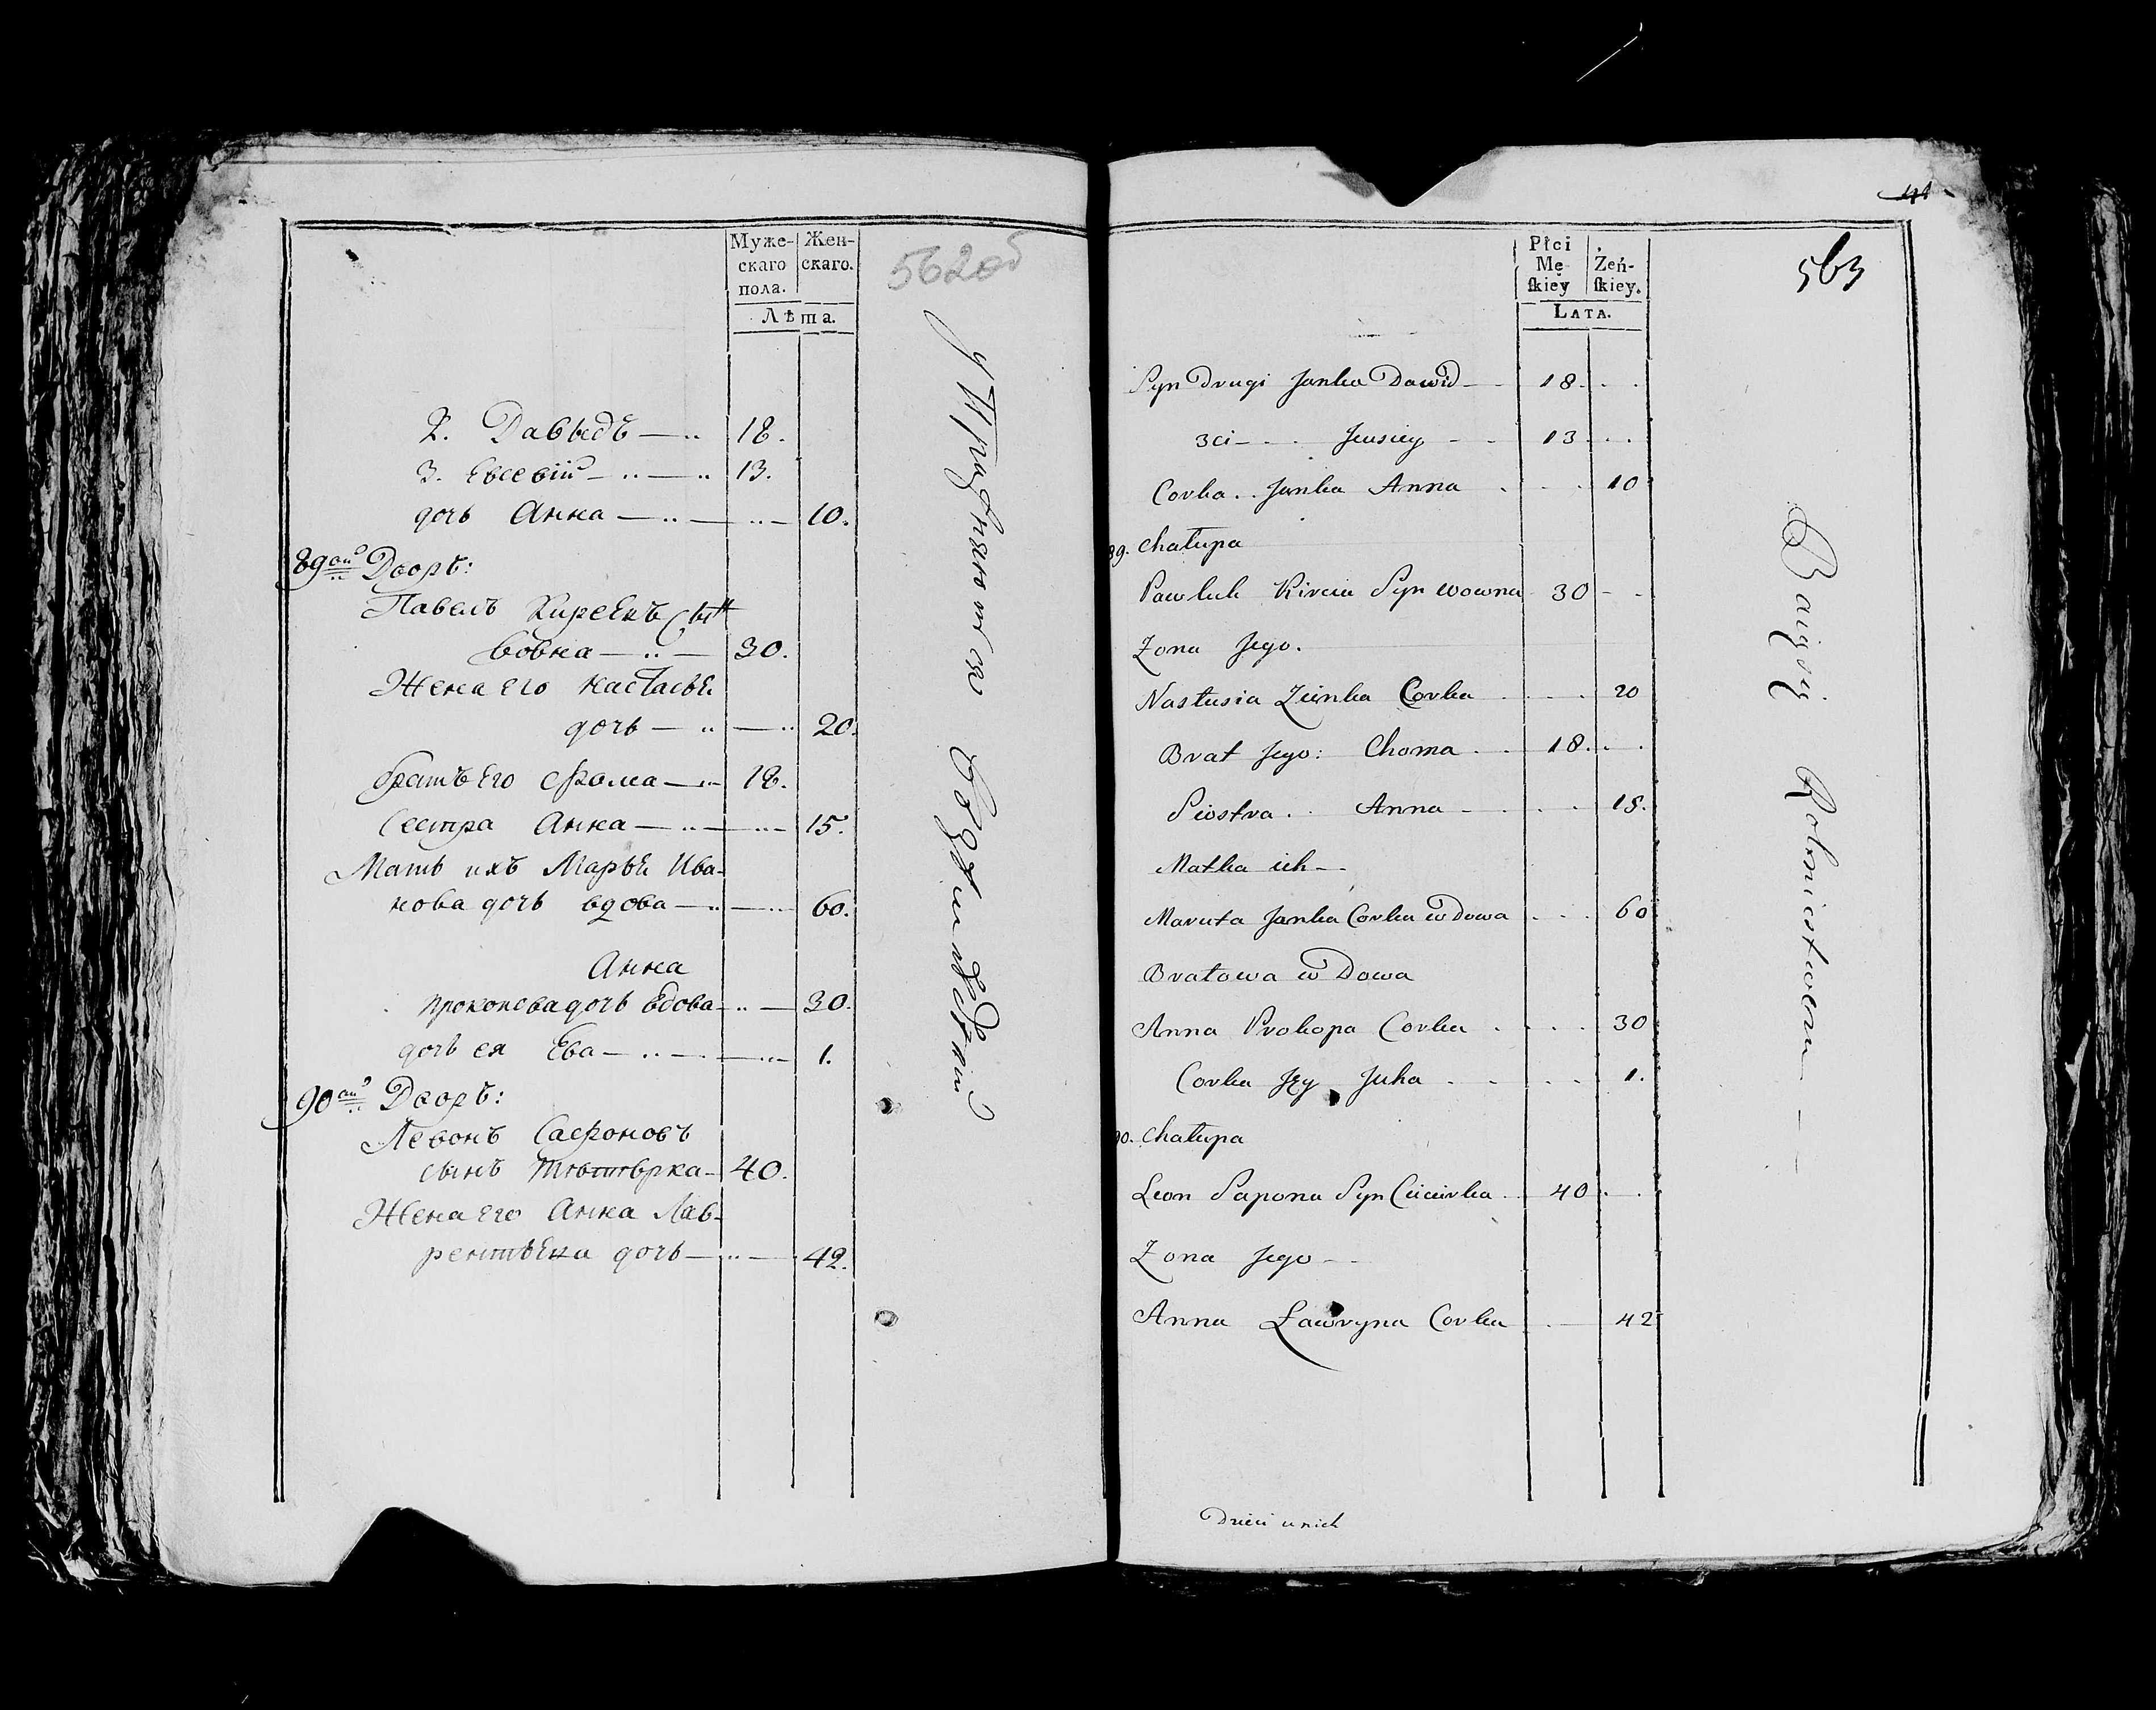 Муже-
скаго
пола.
Жен-
скаго.
Лѣта.
562об
2. Давыдъ — 18.
3. Евсевій — 13.
дочь Анна — 10.
89ой Дворъ:
Павелъ Киреевъ сын
вовна — 30.
Жена его Настасья
дочь — 20.
братъ его Фома — 18.
Сестра Анна — 15.
Мать ихъ Марья Ива-
нова дочь вдова — 60.
Анна
прокопева дочь вдова — 30.
дочь ея Ева — 1.
90ой Дворъ:
Левонъ Сафоновъ
сынъ — 40.
Жена его Анна Лав-
рентьева дочь — 42.
Płci
Mę-
skiey
Żeń-
skiey.
LATA.
563
Syn Drugi Janka Dawid — 18.
3ci — Jeusiey — 13
Corka Janka Anna 10
89. Chałupa
Pawluk Kireia Syn wowna 30
Zona Jego.
Nastusia Zienka Corka 20
Brat Jego: Choma 18.
Siostra Anna 15.
Matka ich —
Maruta Janka Corka wdowa 60
Bratowa wdowa
Anna Prokopa Corka 30
Corka Jey Juha 1.
90. Chałupa
Leon Sapona Syn Ciuciurka 40
Zona Jego —
Anna Ławryna Corka 42
Dzieci u nich
Bawią się Rolnictwem —